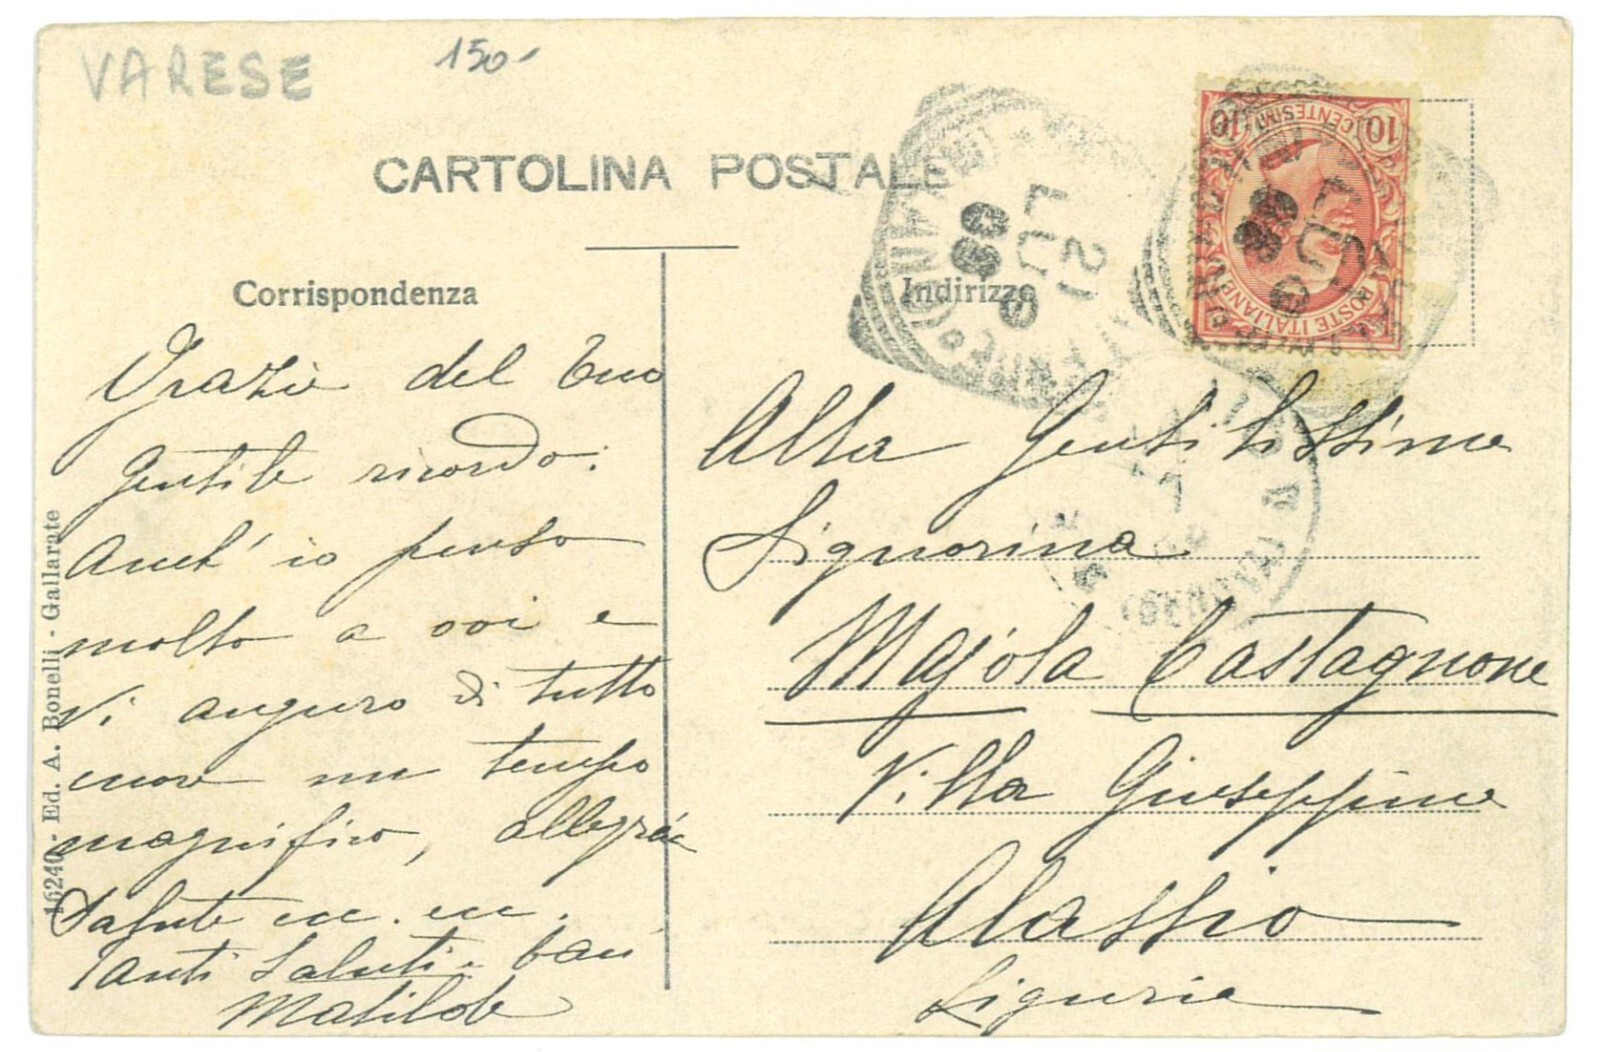 VARESE
150-
CARTOLINA POSTALE
Corrispondenza
Indirizzo
10 CENTESIMI 10
POSTE ITALIANE
21
LUG
09
Grazie del tuo
gentile ricordo:
Anch' io penso
molto a voi e
Vi auguro di tutto
cuore un tempo
magnifico, allegria
salute ecc. ecc.
Tanti saluti baci
Matilde
Alla Gentilissima
Signorina
Majola Castagnone
Villa Giuseppina
Alassio
Liguria
16240 - Ed. A. Bonelli - Gallarate